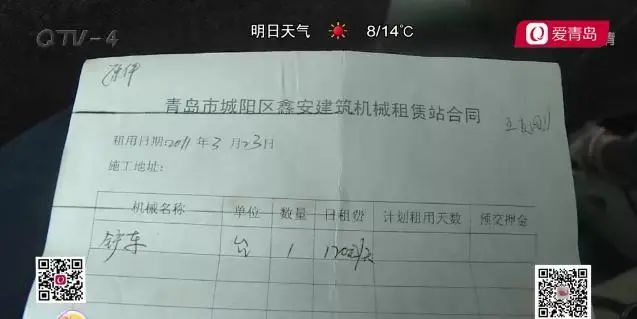 QTV-4
明日天气 8/14℃
爱青岛
原件
青岛市城阳区鑫安建筑机械租赁站合同
租用日期:2011年3月23日
施工地址:
机械名称 单位 数量 日租费 计划租用天数 预交押金
铲车 台 1 170元/天